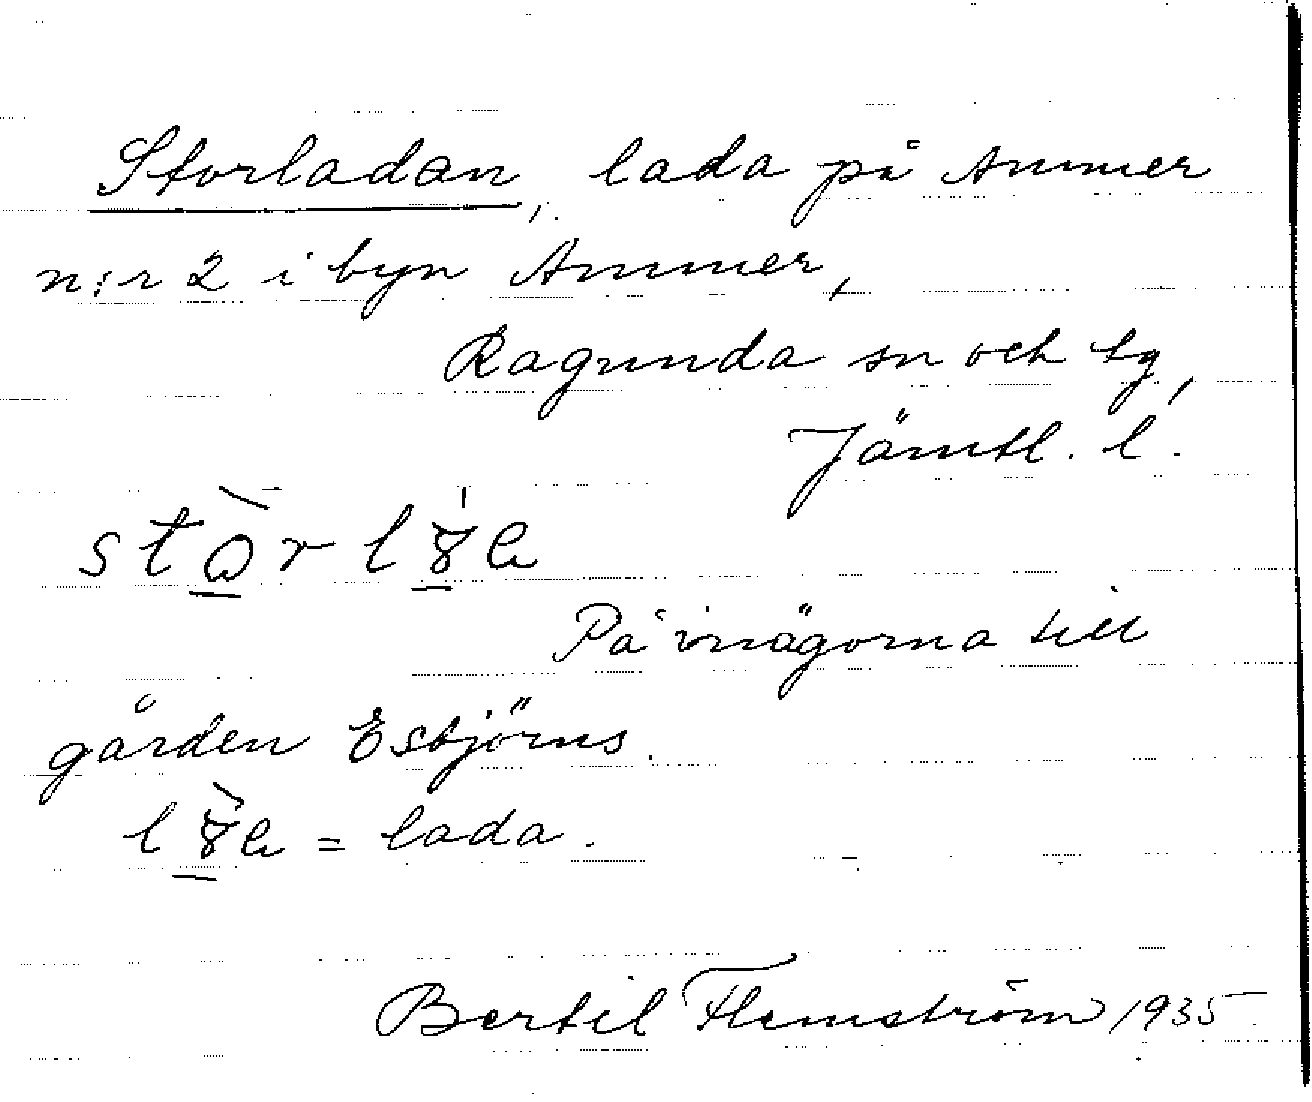 Storladan, lada på Ammer
n:r 2 i byn Ammer,
Ragunda sn och tg,
Jämtl. l.
På inägorna till
gården Esbjörns.
= lada.
Bertil Flemström 1935